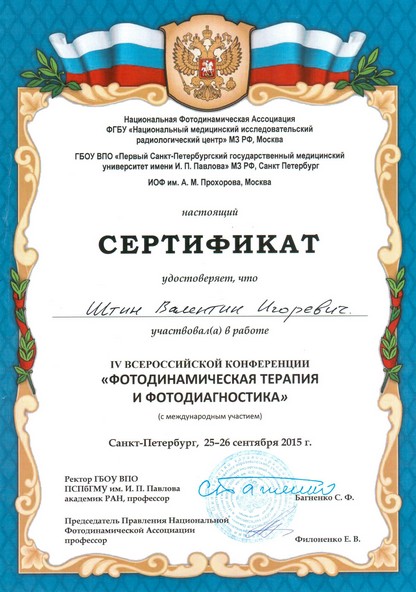 Национальная Фотодинамическая Ассоциация
ФГБУ «Национальный медицинский исследовательский
радиологический центр» МЗ РФ, Москва
ГБОУ ВПО «Первый Санкт-Петербургский государственный медицинский
университет имени И. П. Павлова» МЗ РФ, Санкт Петербург
ИОФ им. А. М. Прохорова, Москва
настоящий
СЕРТИФИКАТ
удостоверяет, что
Штин Валентин Игоревич.
участвовал(а) в работе
IV ВСЕРОССИЙСКОЙ КОНФЕРЕНЦИИ
«ФОТОДИНАМИЧЕСКАЯ ТЕРАПИЯ
И ФОТОДИАГНОСТИКА»
(с международным участием)
Санкт-Петербург, 25–26 сентября 2015 г.
Ректор ГБОУ ВПО
ПСПбГМУ им. И. П. Павлова
академик РАН, профессор
Багненко С. Ф.
Председатель Правления Национальной
Фотодинамической Ассоциации
профессор
Филоненко Е. В.